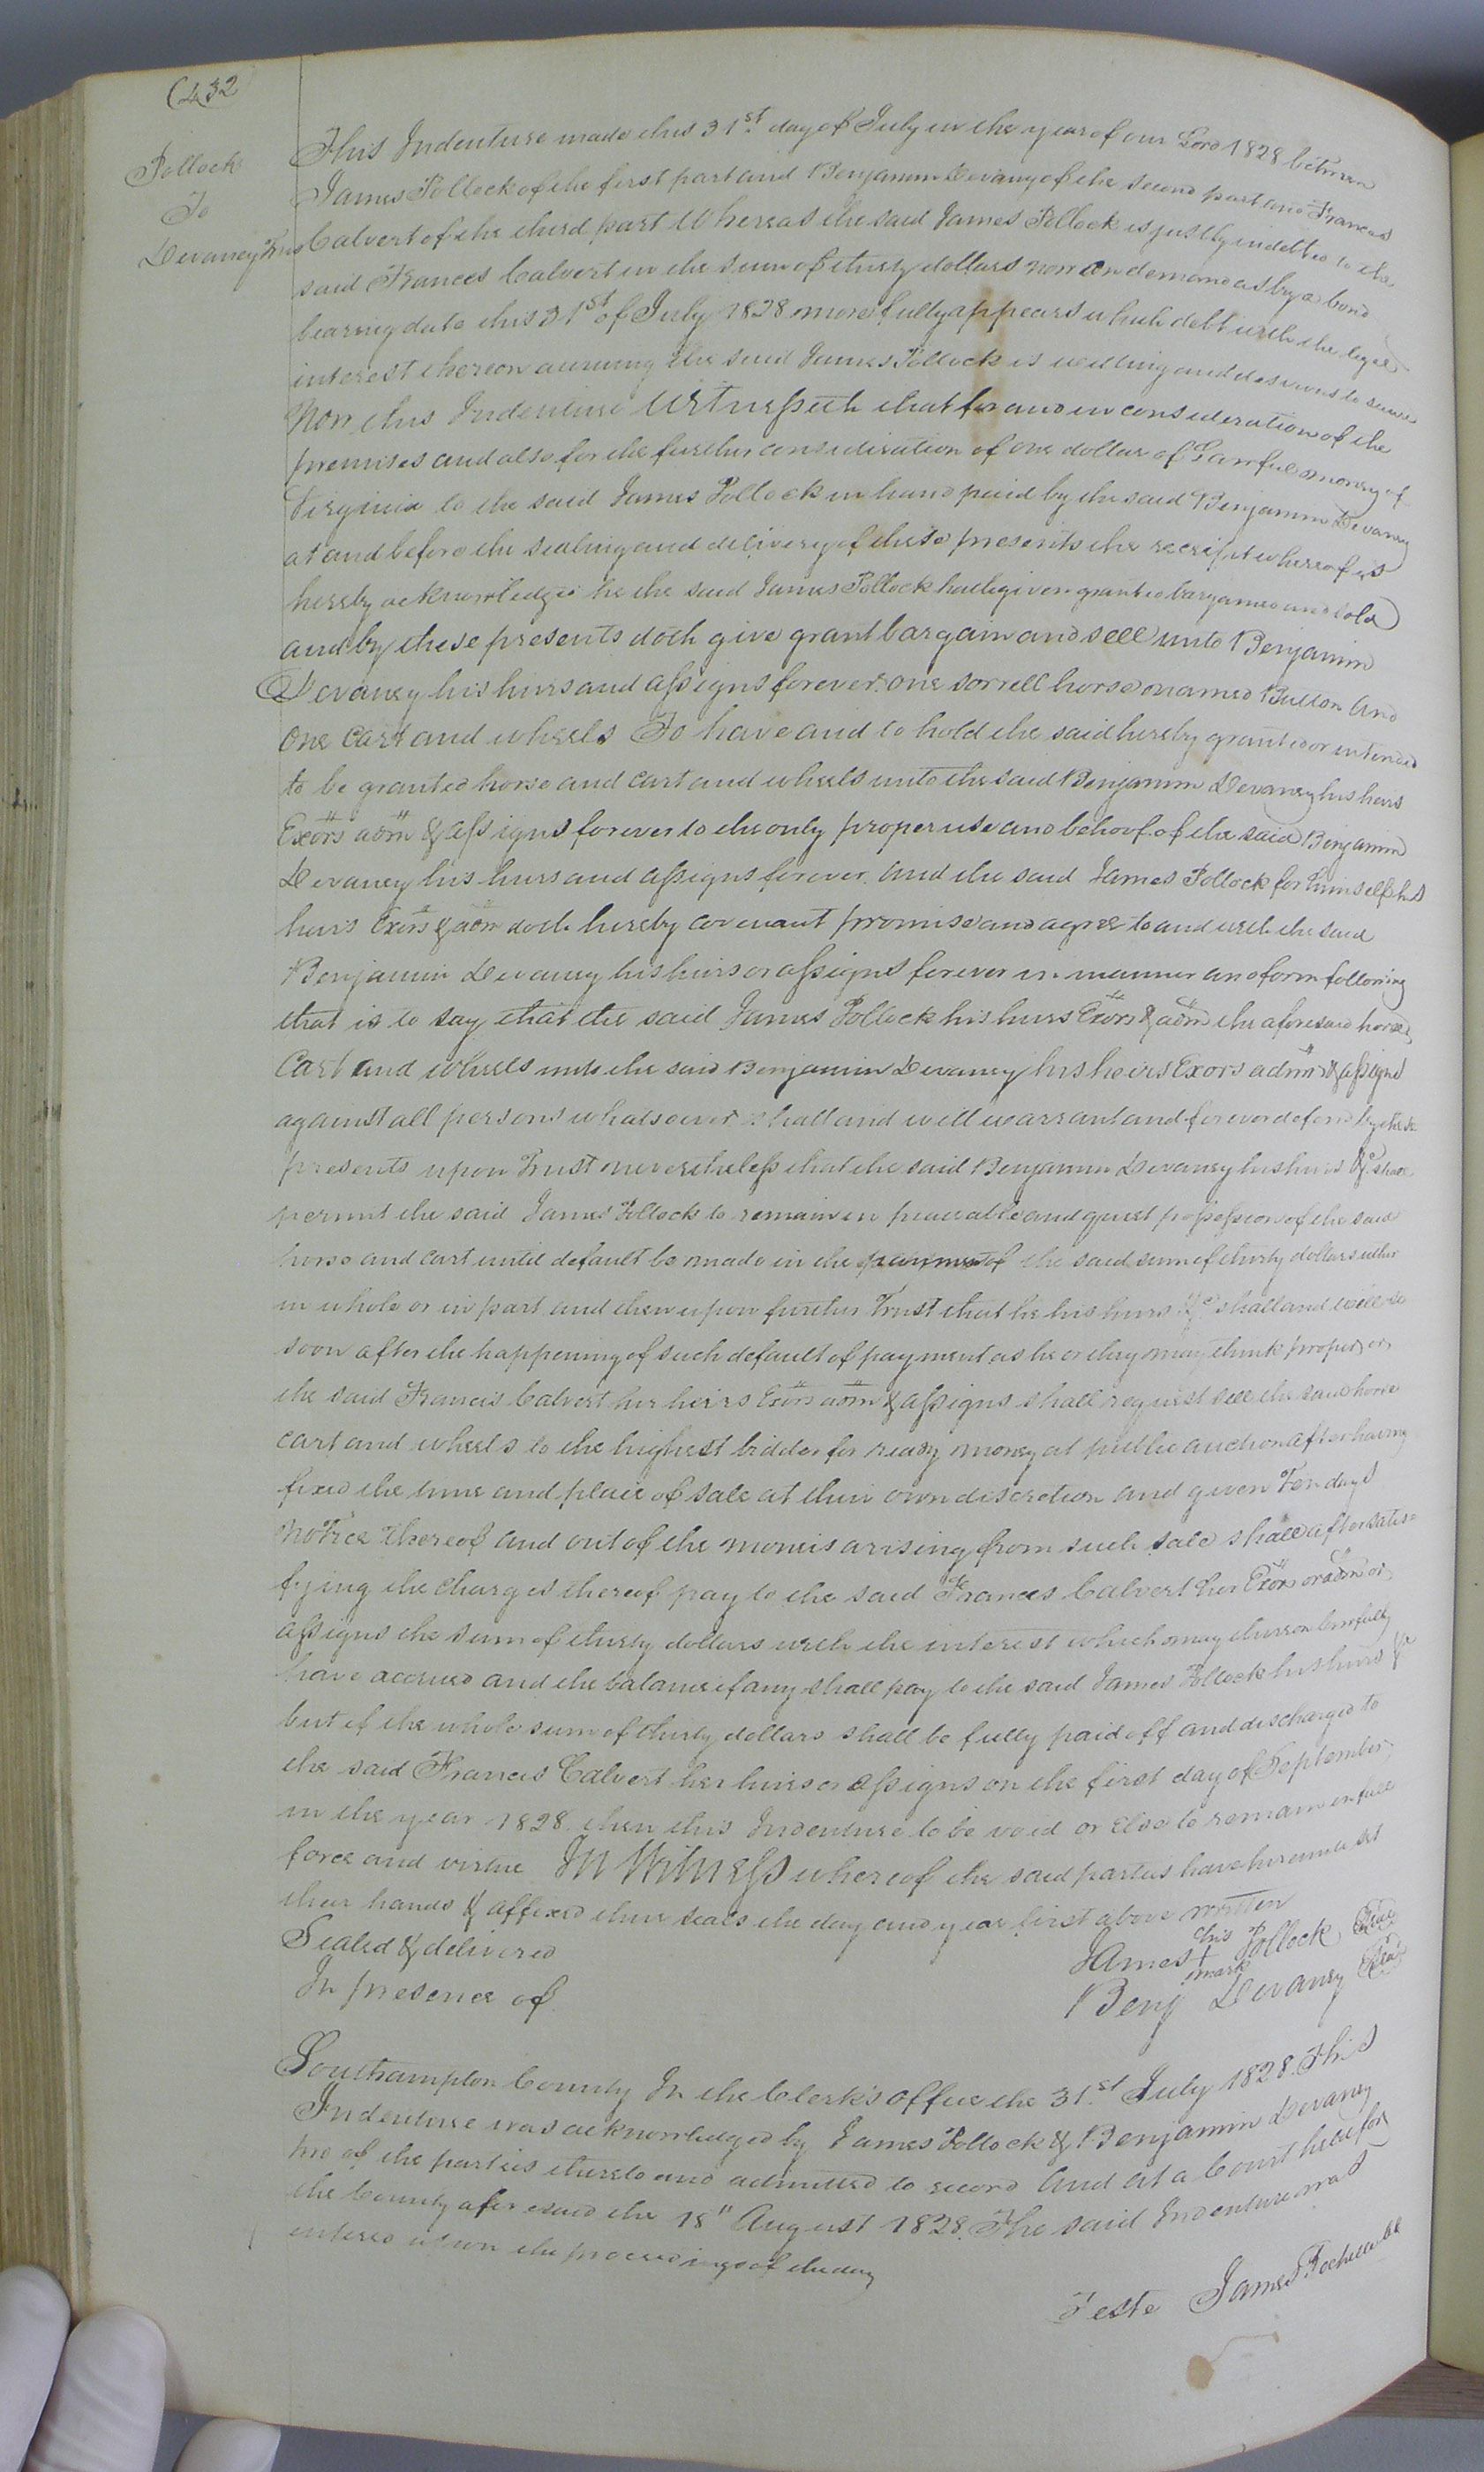 (432
Pollock
To
Devaney Trus
This Indenture made this 31st day of July in the year of our Lord 1828 between
James Pollock of the first part and Benjamin Devaney of the second part and Frances
Calvert of the third part Whereas the said James Pollock is justly indebted to the
said Frances Calvert in the sum of thirty dollars now on demand as by a bond
bearing date this 31st of July 1828 more fully appears which debt with the legal
interest thereon accruing the said James Pollock is willing and desirous to secure
Now this Indenture Witnesseth that for and in consideration of the
premises and also for the further consideration of one dollar of Lawful money of
Virginia to the said James Pollock in hand paid by the said Benjamin Devaney
at and before the sealing and delivery of these presents the receipt whereof is
hereby acknowledged he the said James Pollock hath given granted bargained and sold
and by these presents doth give grant bargain and sell unto Benjamin
Devaney his heirs and assigns forever one sorrell horse named Button and
one cart and wheels To have and to hold the said hereby granted or intended
to be granted horse and cart and wheels unto the said Benjamin Devaney his heirs
Exors adm & assigns forever to the only proper use and behoof of the said Benjamin
Devaney his heirs and assigns forever. and the said James Pollock for himself his
heirs Exors & adm doth hereby covenant promise and agree to and with the said
Benjamin Devaney his heirs or assigns forever in manner and form following
that is to say that the said James Pollock his heirs Exors & adm the aforesaid horse,
Cart and wheels unto the said Benjamin Devaney his heirs Exors adm & assigns
against all persons whatsoever shall and will warrant and forever defend by these
presents upon Trust nevertheless that the said Benjamin Devaney his heirs &c shall
permit the said James Pollock to remain in peaceable and quiet possession of the said
horse and cart until default be made in the payment of the said sum of thirty dollars either
in whole or in part and then upon further Trust that he his heirs &c shall and will so
soon after the happening of such default of payment as he or they may think proper, or,
the said Francis Calvert her heirs Exors adm & assigns shall request sell the said horse
cart and wheels to the highest bidder for ready money at public auction after having
fixed the time and place of sale at their own discretion and given Ten days
Notice thereof and out of the monies arising from such sale shall after satis=
fying the charges thereof pay to the said Frances Calvert her Exors or adm or,
assigns the sum of thirty dollars with the interest which may thereon lawfully
have accrued and the balance if any shall pay to the said James Pollock his heirs &c
but if the whole sum of thirty dollars shall be fully paid off and discharged to
the said Francis Calvert her heirs or assigns on the first day of September,
in the year 1828 then this Indenture to be void or Else to remain in full
force and virtue In Witness whereof the said parties have hereunto set
their hands & affixed their seals the day and year first above written
Sealed & delivered
In presence of
James his + mark Pollock Seal
Benj Devaney Seal
Southampton County In the Clerk's office the 31st July 1828. This
Indenture was acknowledged by James Pollock & Benjamin Devaney
two of the parties thereto and admitted to record And at a Court held for
the County aforesaid the 18" August 1828. The said Indenture was
entered upon the proceedings of the day
Teste James Rochelle Clk